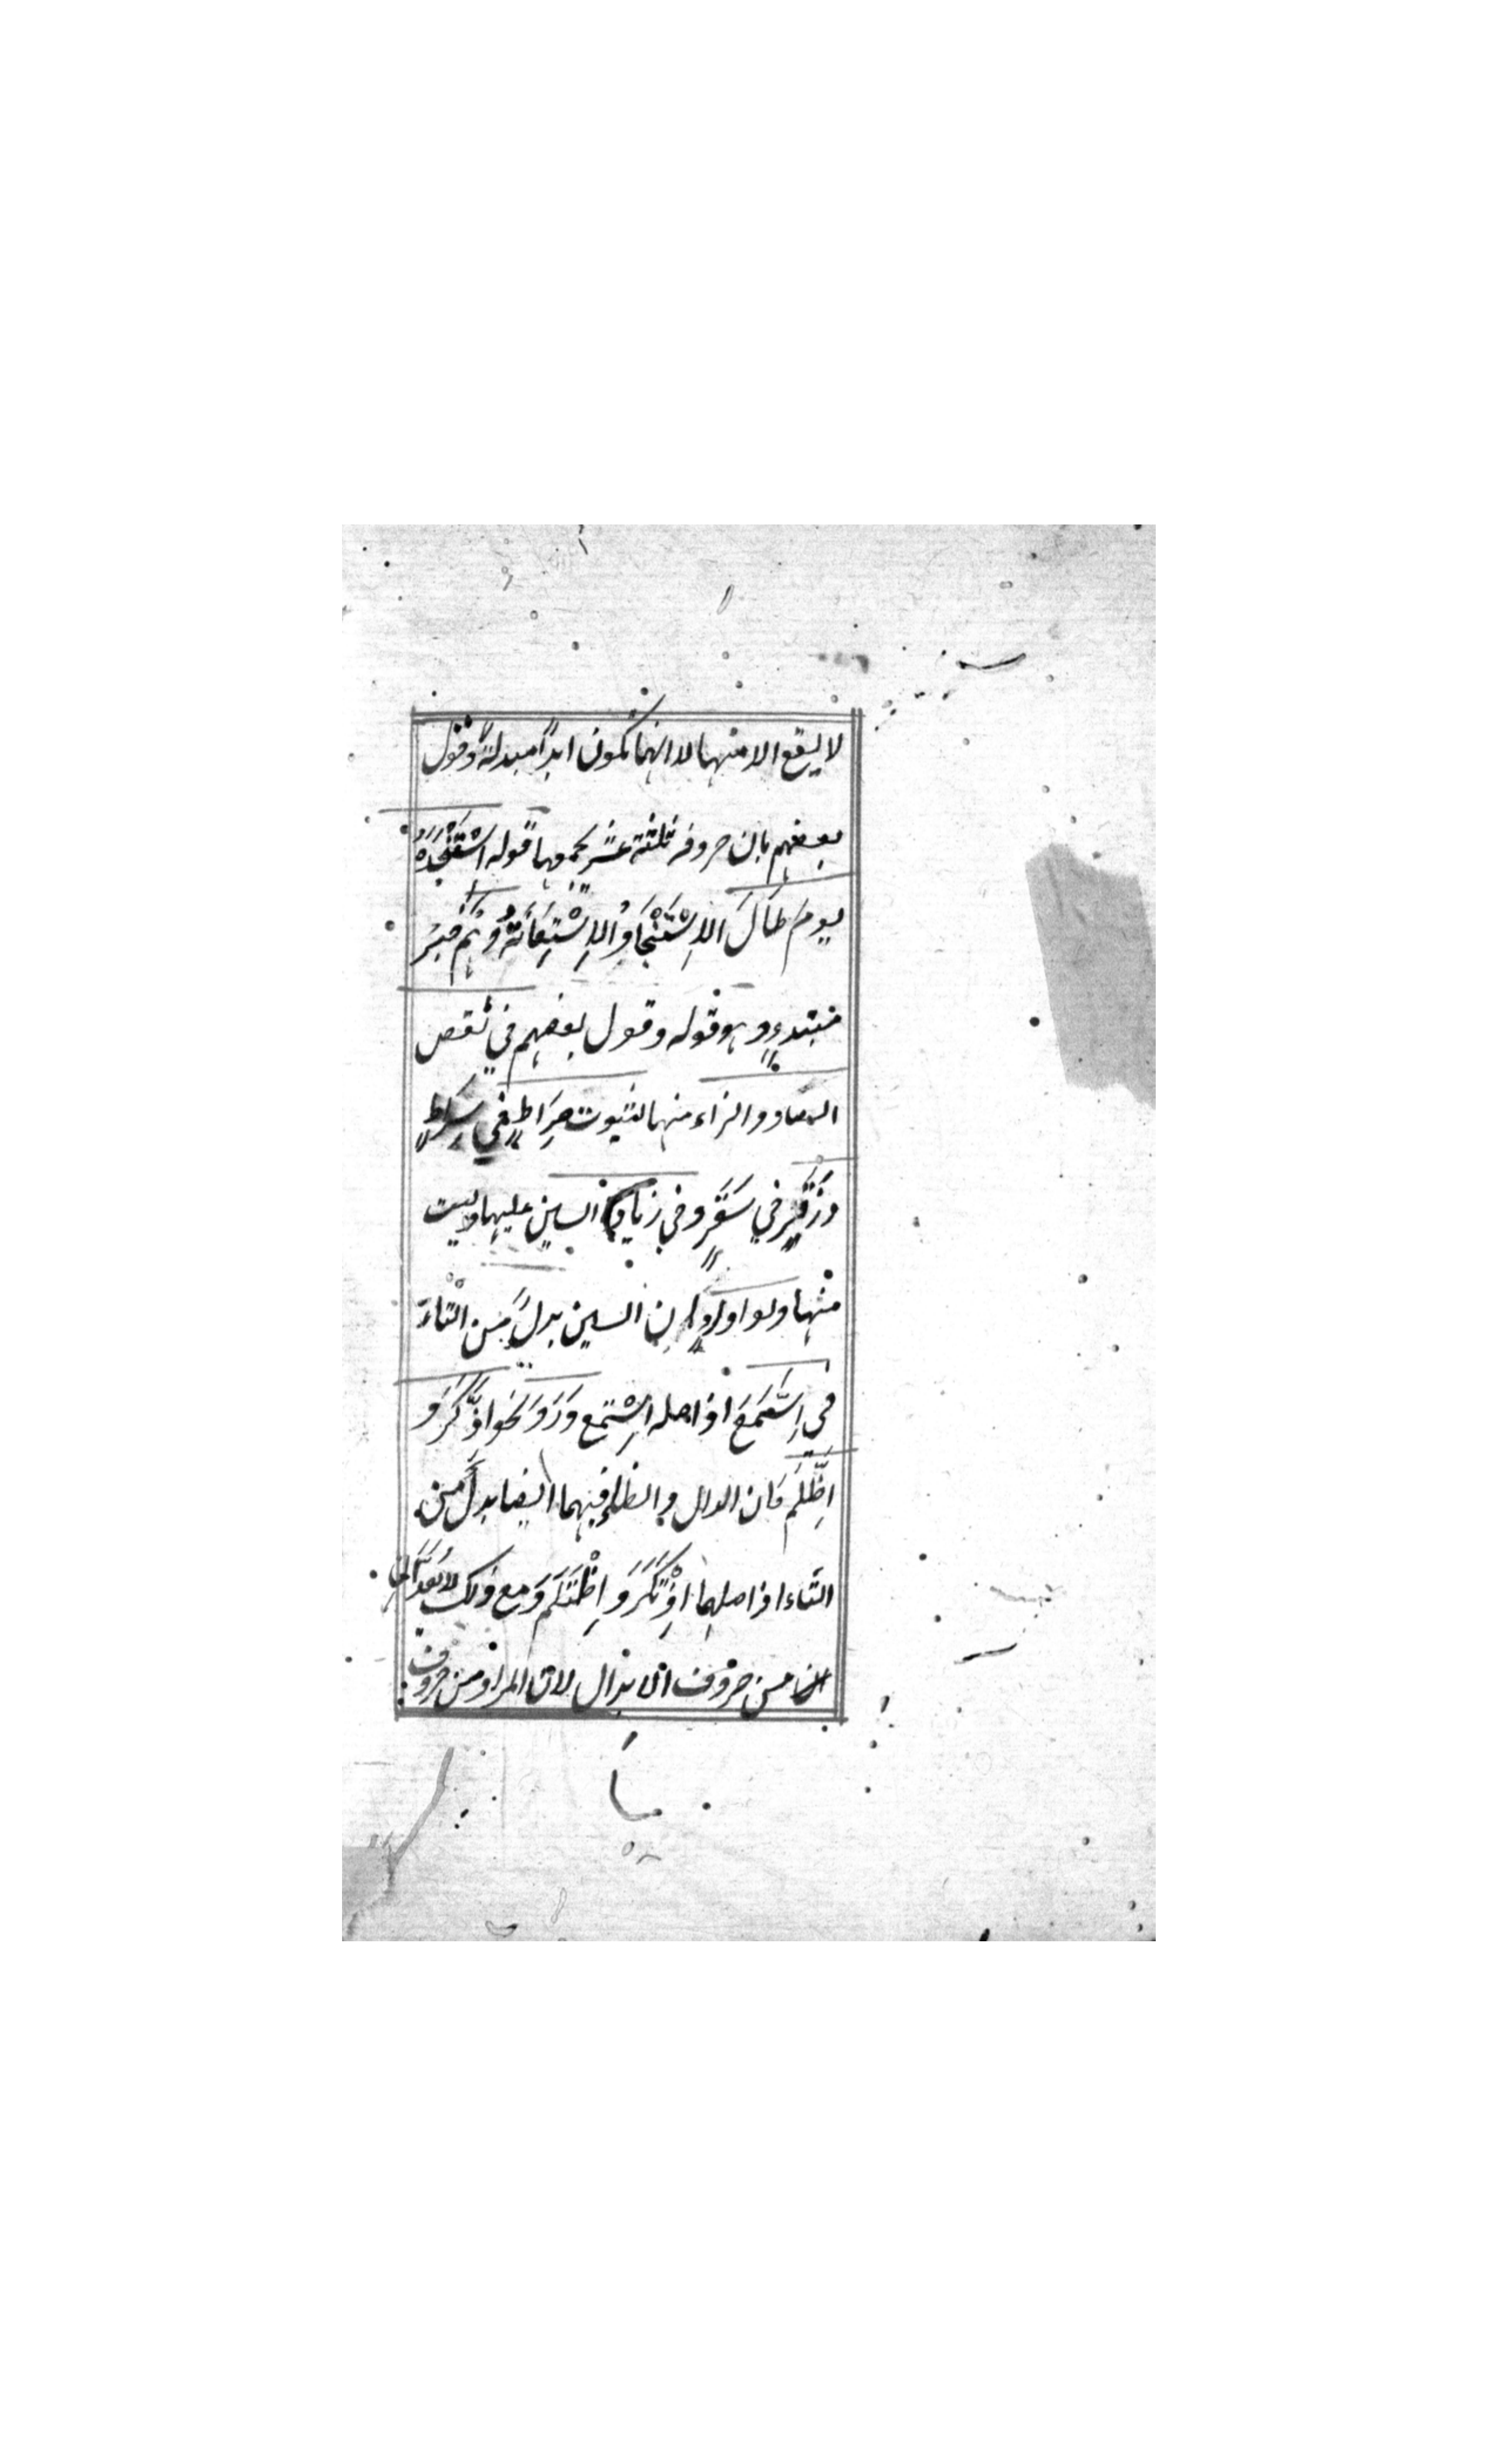 لا يقع الا منهما لا انهما تكون ابداً مبدلة وقول
بعضهم بان حروفه ثلثة عشر يجمعها قوله استنجده
يوم طال الاستنجاد والاستعانة وهم خبر
مبتدء وهو قوله وقول بعضهم في نقص
الصاد والزاء منها لثبوت صِرَاطٍ في سِرَاطٍ
وزَقَرٍ في سَقَرٍ وفي زيادة السين عليها وليست
منها ولو اوردوا ن السين بدلٌ من التاء
في اِسَّمَعَ اذ اصله اِسْتَمَع وَرَدَ نحو اذَّكَرَ وَ
اِظَّلَمَ فان الدال والظاء فيهما ايضا بدلٌ من
التاء اذ اصلهما اِذْتَكَرَ وَ اِظْتَلَمَ وَمع ذلك لا يُعَدَّانِ
من حروف الابدال لان المراد من حروف